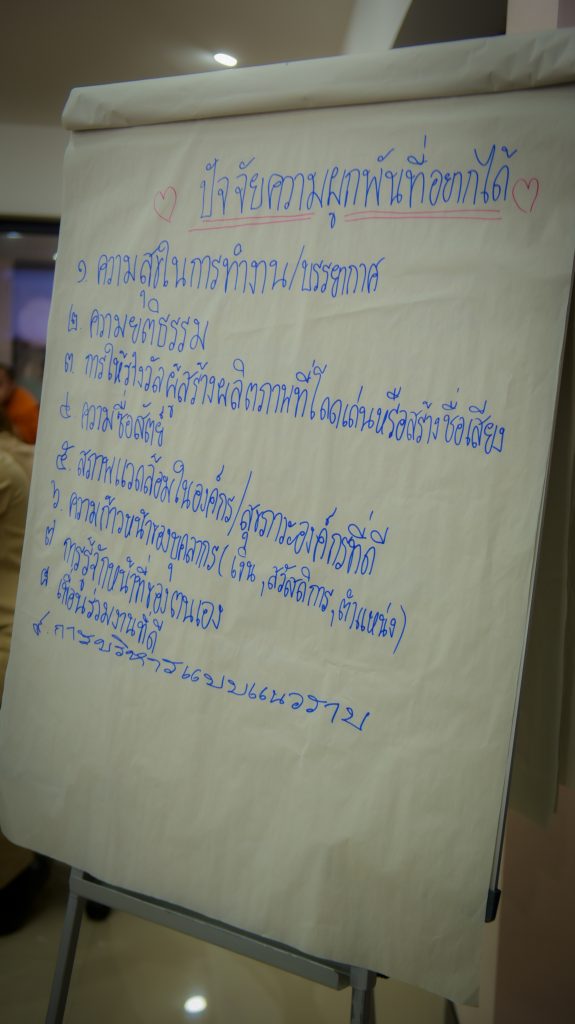 ปัจจัยความผูกพันที่อยากได้
๑. ความสุขในการทำงาน/บรรยากาศ
๒. ความยุติธรรม
๓. การให้รางวัลผู้สร้างผลิตภาพที่โดดเด่นหรือสร้างชื่อเสียง
๔. ความซื่อสัตย์
๕. สภาพแวดล้อมในองค์กร/สุขภาวะองค์กรที่ดี
๖. ความก้าวหน้าของบุคลากร (เงิน, สวัสดิการ, ตำแหน่ง)
๗. การรู้จักหน้าที่ของตนเอง
๘. เพื่อนร่วมงานที่ดี
๙. การบริหารแบบแนวราบ